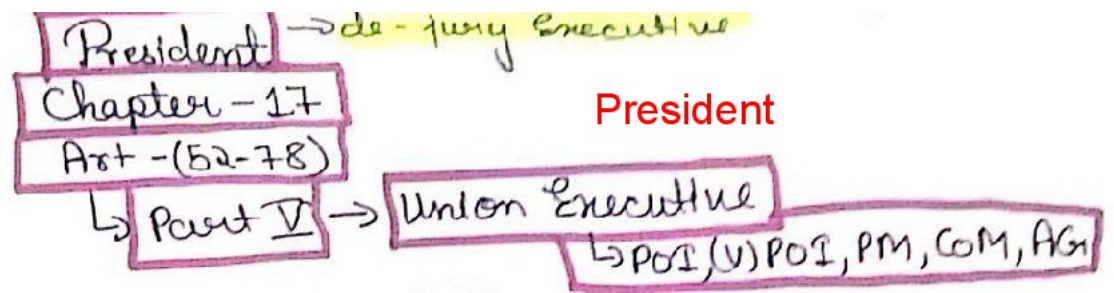 President → de-jury Executive
Chapter - 17
President
Art - (52-78)
↳ Part V → Union Executive
↳ POI, (V) POI, PM, COM, AG